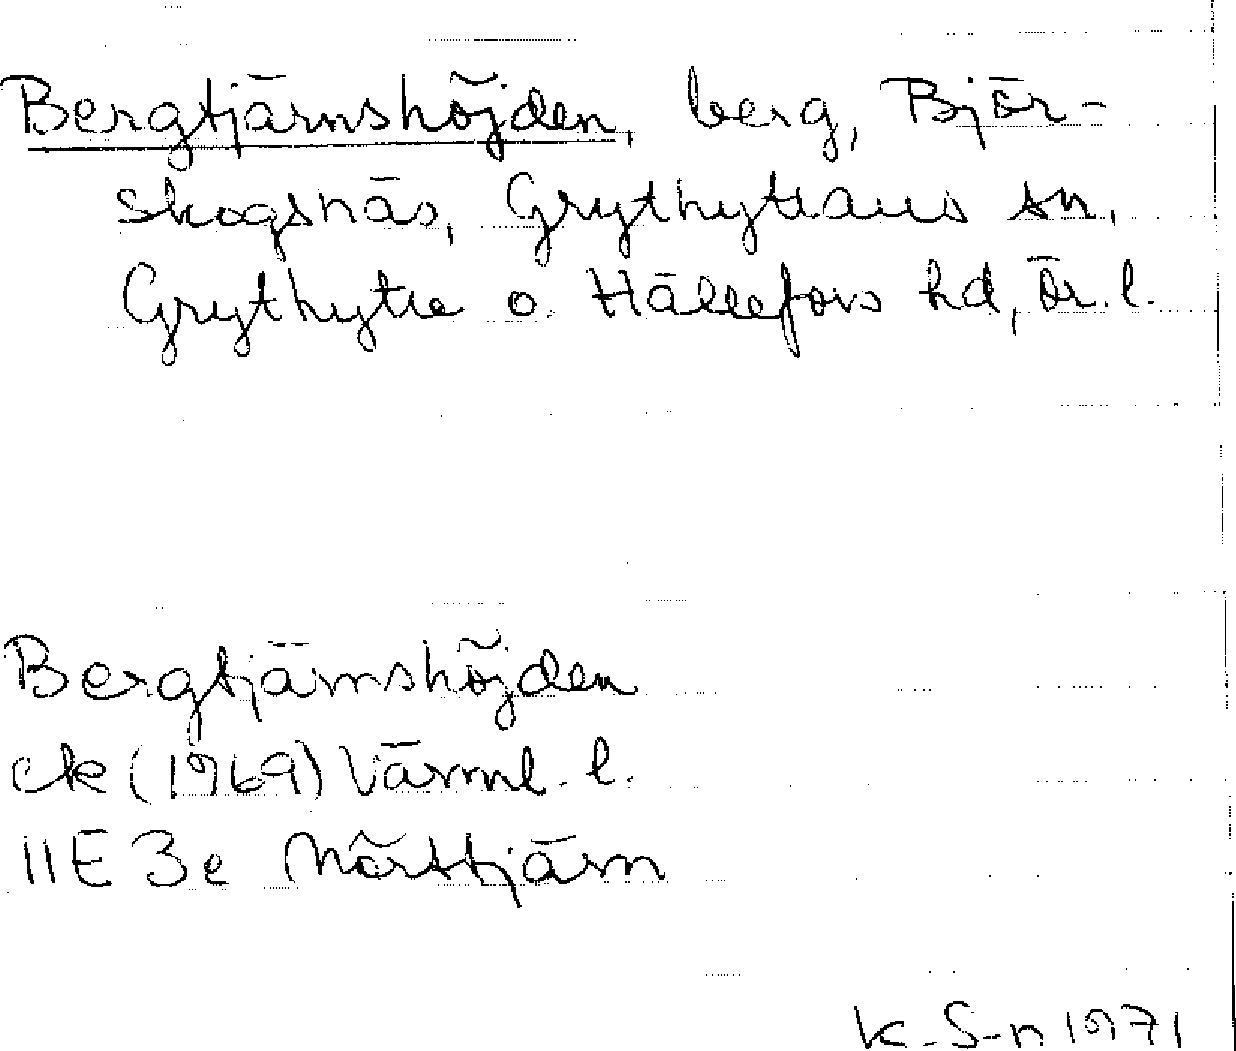 Bergtjärnshöjden, berg, Björ-
skogsnäs, Grythyttans sn,
Grythytte o. Hällefors hd, Ör. l.
Bergtjärnshöjden
ek (1969) Värml. l.
11E 3e Mörttjärn
K. S-n 1971